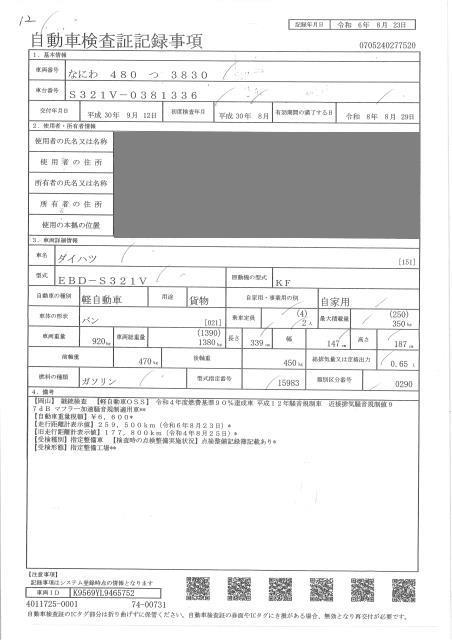 12
記録年月日 令和 6年 8月 23日
自動車検査証記録事項
0705240277520
1．基本情報
車両番号 なにわ 480 つ 3830
車台番号 S321V-0381336
交付年月日 平成 30年 9月 12日 初度検査年月 平成 30年 8月 有効期間の満了する日 令和 8年 8月 29日
2．使用者・所有者情報
使用者の氏名又は名称
使用者の住所
所有者の氏名又は名称
所有者の住所
使用の本拠の位置
3．車両詳細情報
車名 ダイハツ [151]
型式 EBD-S321V 原動機の型式 KF
自動車の種別 軽自動車 用途 貨物 自家用・事業用の別 自家用
車体の形状 バン [021] 乗車定員 (4) 2人 最大積載量 (250) 350kg
車両重量 920kg 車両総重量 (1390) 1380kg 長さ 339cm 幅 147cm 高さ 187cm
前軸重 470kg 後軸重 450kg 総排気量又は定格出力 0.65 L
燃料の種類 ガソリン 型式指定番号 15983 類別区分番号 0290
4．備考
【岡山】 継続検査 【軽自動車OSS】 令和4年度燃費基準90%達成車 平成12年騒音規制車 近接排気騒音規制値9
7dB マフラー加速騒音規制適用車**
【自動車重量税額】¥6,600*
【走行距離計表示値】259,500km（令和6年8月23日）*
【旧走行距離計表示値】177,800km（令和4年8月25日）*
【受検種別】指定整備車 【検査時の点検整備実施状況】点検整備記録簿記載あり*
【受検形態】指定整備工場**
【注意事項】
記録事項はシステム登録時点の情報となります
車両ID K9569YL9465752
4011725-0001 74-00731
自動車検査証のICタグ部分は折り曲げずに保管ください。自動車検査証の券面やICタグにき損がある場合、無効となり再交付が必要です。